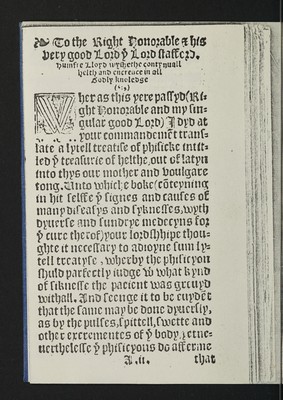 To the Right Honorable & his
very good Lord yͤ Lord stafferd.
Humfre Lloyd wysshethe contynuall
helth and encreace in all
Godly knoledge
Wher as this yere passyd (Ri-
ght Honorable and my sin-
gular good Lord) J dyd at
your commandemēt trans-
late a lytell treatise of phisicke intit-
led yͤ treasurie of helthe, out of latyn
into thys our mother and voulgare
tong. Unto whiche boke (cōteyning
in hit selfe yͤ signes and causes of
many diseasys and syknesses, wyth
dyuerse and sundrye medecyns for
yͤ cure therof) your lordshhipe thou-
ghte it necessary to adioyne sum ly-
tell treatyse, wherby the phisicyon
shuld parfectly iudge wͭ what kynd
of siknesse the pacient was greuyd
withall. And seenge it to be euydēt
that the same may be done dyuersly,
as by the pulses, spittell, swette and
other excrementes of yͤ body, & tne-
uerthelesse yͤ phisicyons do afferme
A.ii. that